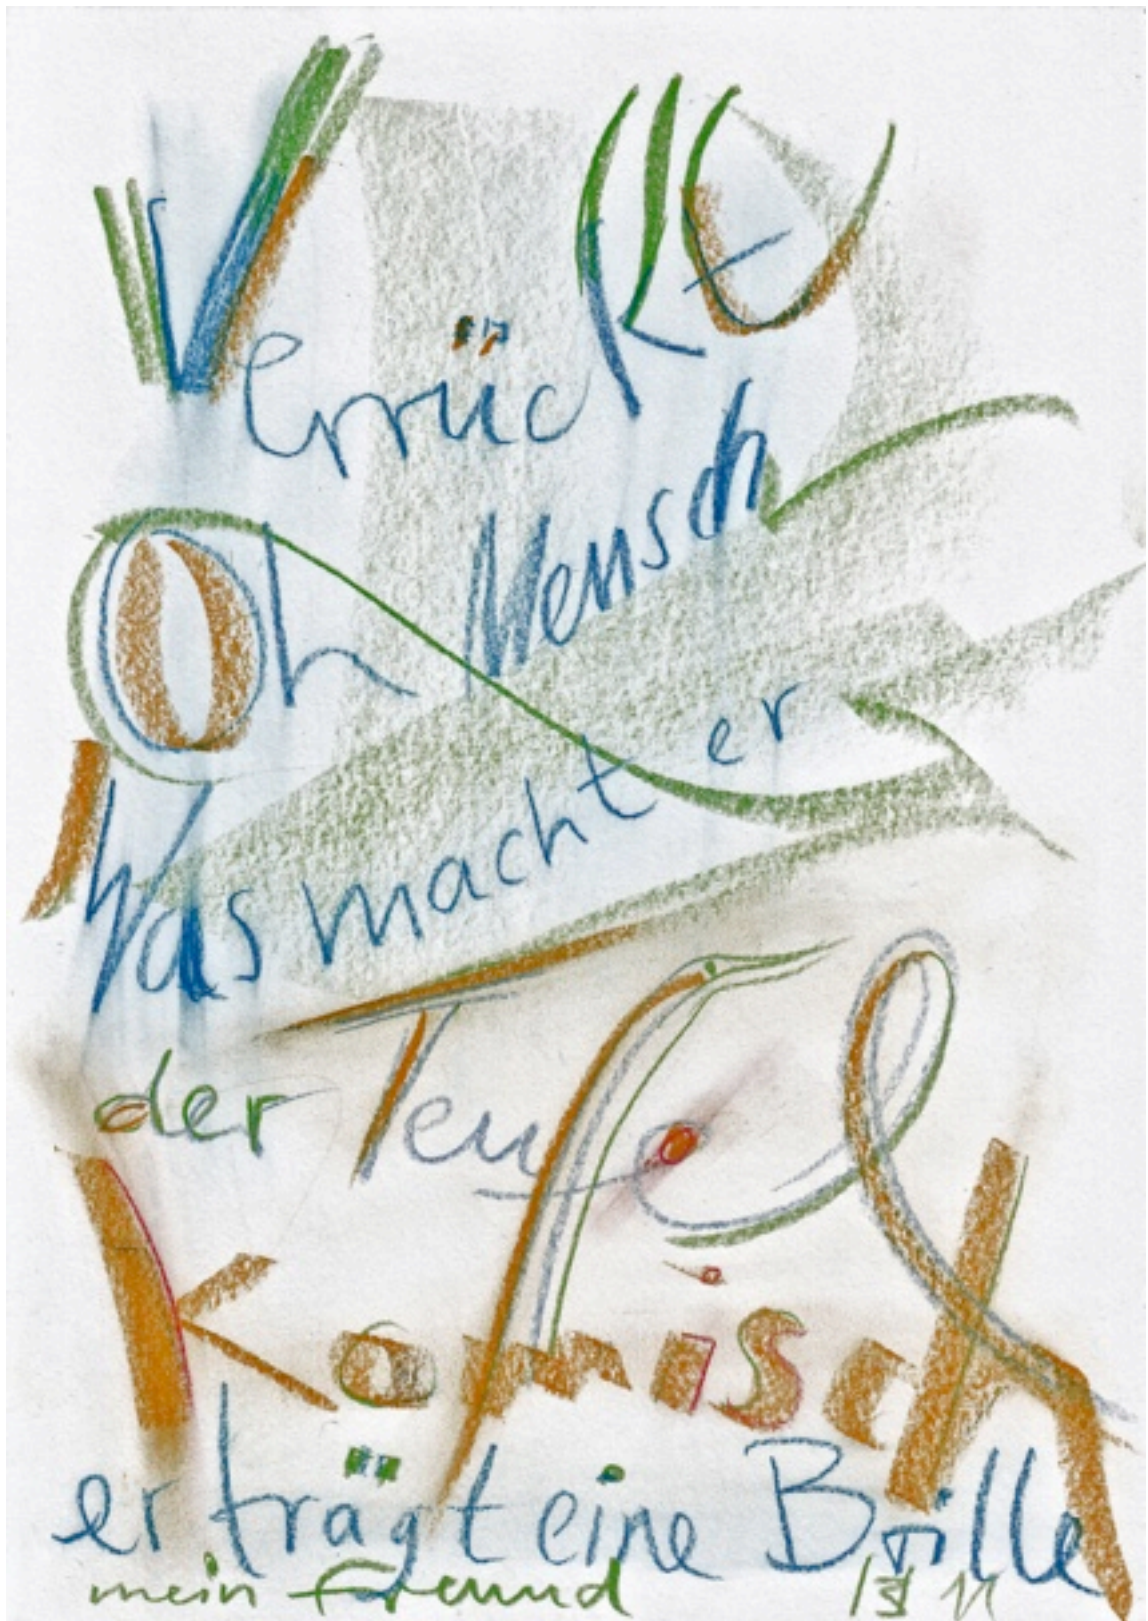 Verrückt
Oh Mensch
Was macht er
der Teufel
Komisch
er trägt eine Brille
mein Freund